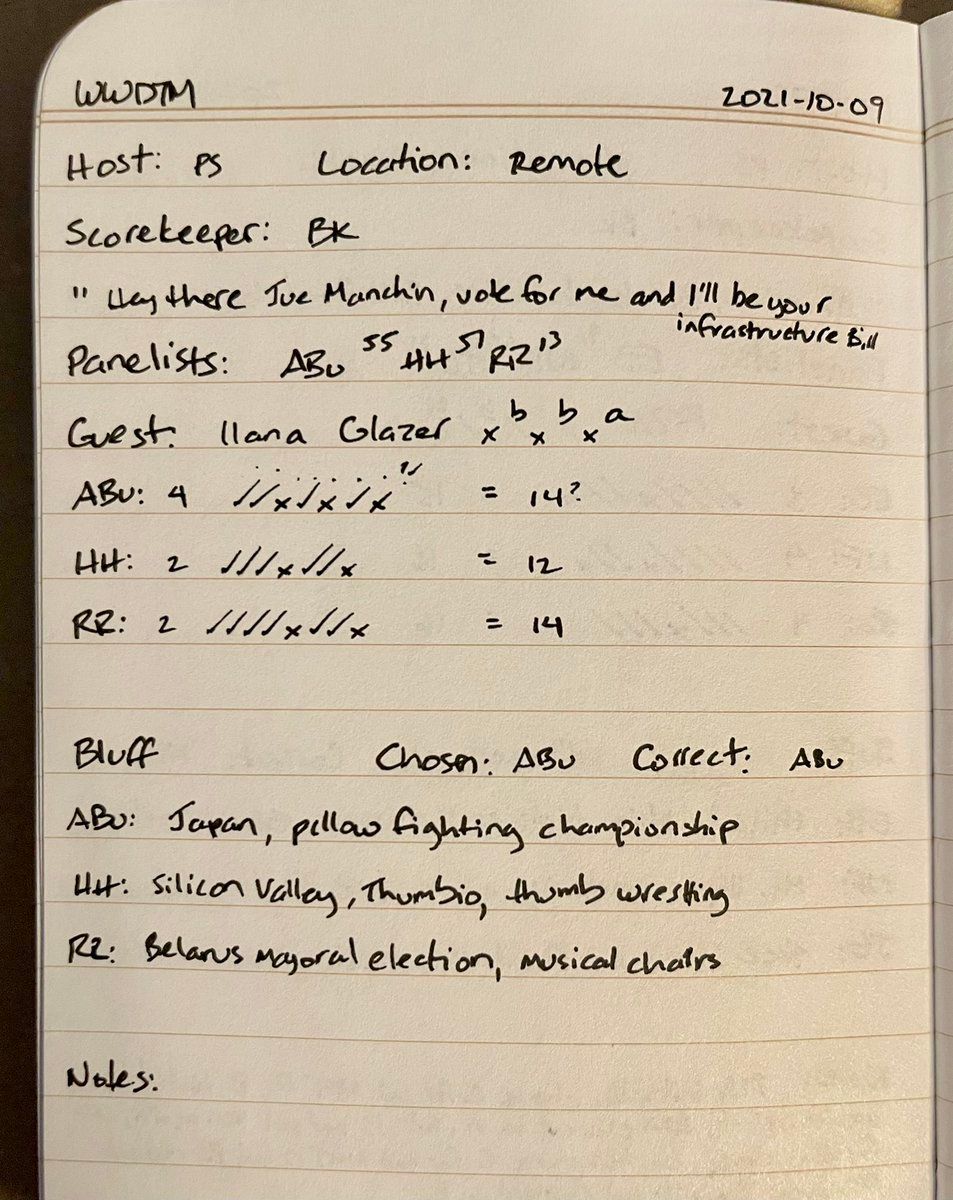 WWDTM 2021-10-09
Host: PS Location: Remote
Scorekeeper: BK
" Hey there Joe Manchin, vote for me and I'll be your
infrastructure Bill
Panelists: ABU 55 HH 51 RR 13
Guest: Ilana Glazer x b x b x a
ABU: 4 //x/x/x = 14?
HH: 2 ///x//x = 12
RR: 2 ////x//x = 14
Bluff Chosen: ABU Correct: ABU
ABU: Japan, pillow fighting championship
HH: Silicon Valley, Thumbio, thumb wrestling
RR: Belarus mayoral election, musical chairs
Notes: